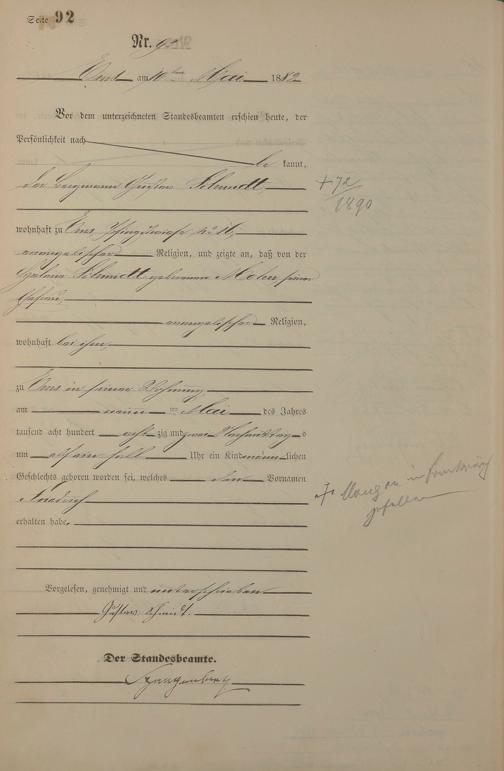 Seite 92
Nr. 92
Ems am 10ten Mai 1882
Vor dem unterzeichneten Standesbeamten erschien heute, der
Persönlichkeit nach
be kannt,
der Bergmann Gustav Schmidt,
+ 72/1890
wohnhaft zu Ems
evangelischer Religion, und zeigte an, daß von der
Schmidt geborenen seiner
Ehefrau,
evangelischer Religion,
wohnhaft bei ihm,
zu Ems in seiner Wohnung
am neunten Mai des Jahres
tausend acht hundert acht zig und zwei Nachmittag s
um Uhr ein Kind männ lichen
Geschlechts geboren worden sei, welches den Vornamen
Friedrich
erhalten habe.
in
gefallen
Vorgelesen, genehmigt und unterschrieben
Gustav Schmidt.
Der Standesbeamte.